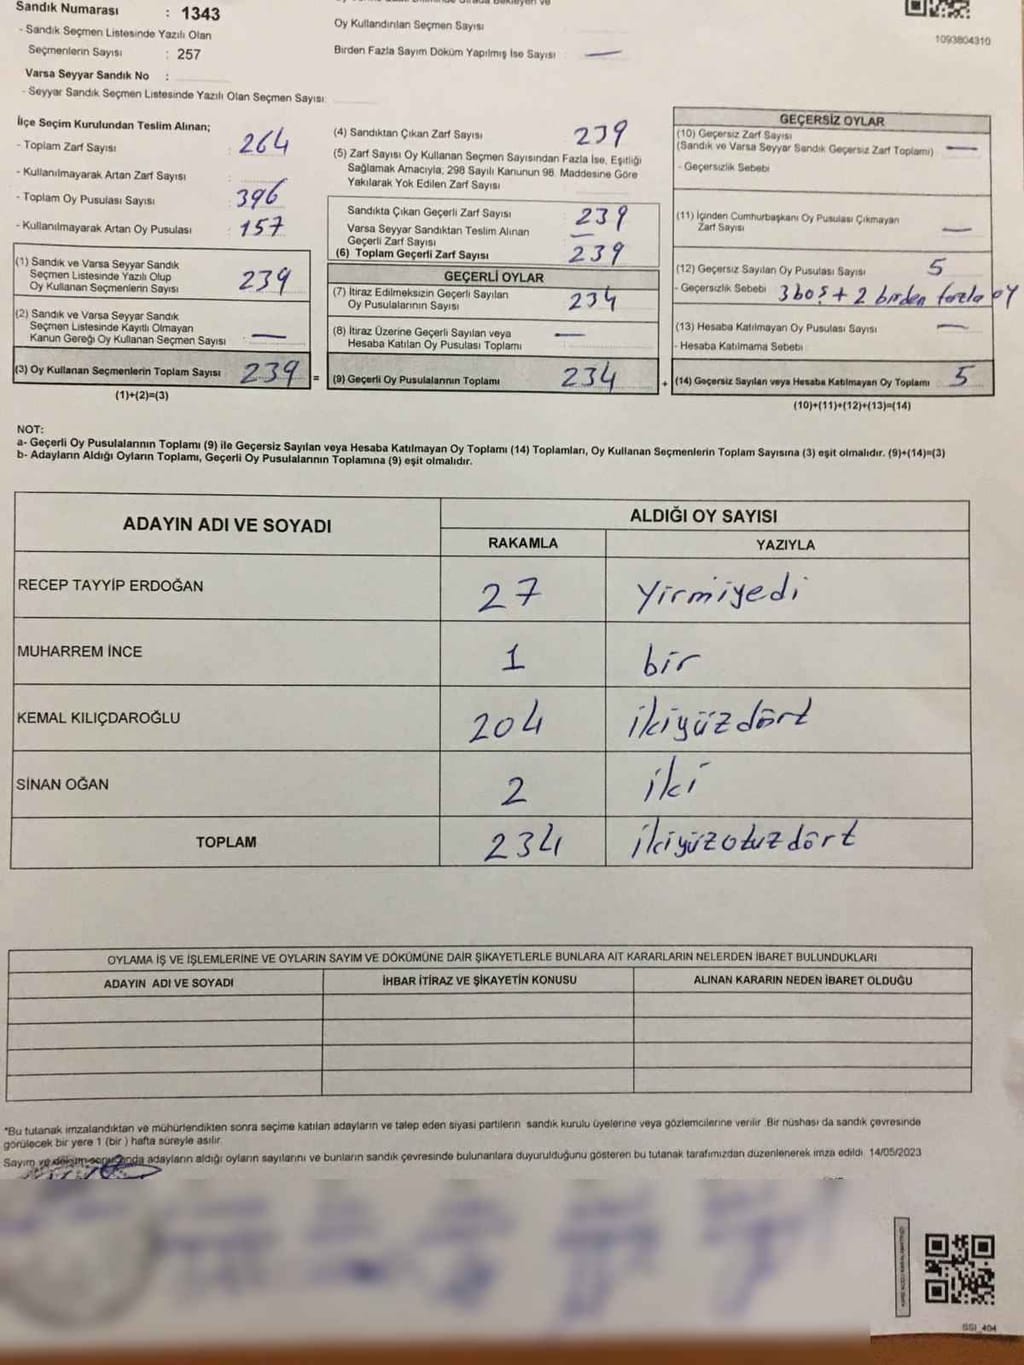 Sandık Numarası : 1343
- Sandık Seçmen Listesinde Yazılı Olan
Seçmenlerin Sayısı : 257
Varsa Seyyar Sandık No :
- Seyyar Sandık Seçmen Listesinde Yazılı Olan Seçmen Sayısı:
Oy Kullandırılan Seçmen Sayısı
Birden Fazla Sayım Döküm Yapılmış İse Sayısı : —
1093804310
İlçe Seçim Kurulundan Teslim Alınan;
- Toplam Zarf Sayısı : 264
- Kullanılmayarak Artan Zarf Sayısı
- Toplam Oy Pusulası Sayısı : 396
- Kullanılmayarak Artan Oy Pusulası : 157
(1) Sandık ve Varsa Seyyar Sandık
Seçmen Listesinde Yazılı Olup
Oy Kullanan Seçmenlerin Sayısı 239
(2) Sandık ve Varsa Seyyar Sandık
Seçmen Listesinde Kayıtlı Olmayan
Kanun Gereği Oy Kullanan Seçmen Sayısı —
(3) Oy Kullanan Seçmenlerin Toplam Sayısı 239 =
(1)+(2)=(3)
(4) Sandıktan Çıkan Zarf Sayısı 239
(5) Zarf Sayısı Oy Kullanan Seçmen Sayısından Fazla İse, Eşitliği
Sağlamak Amacıyla; 298 Sayılı Kanunun 98. Maddesine Göre
Yakılarak Yok Edilen Zarf Sayısı
Sandıkta Çıkan Geçerli Zarf Sayısı 239
Varsa Seyyar Sandıktan Teslim Alınan
Geçerli Zarf Sayısı —
(6) Toplam Geçerli Zarf Sayısı 239
GEÇERLİ OYLAR
(7) İtiraz Edilmeksizin Geçerli Sayılan
Oy Pusulalarının Sayısı 234
(8) İtiraz Üzerine Geçerli Sayılan veya
Hesaba Katılan Oy Pusulası Toplamı —
(9) Geçerli Oy Pusulalarının Toplamı 234 +
GEÇERSİZ OYLAR
(10) Geçersiz Zarf Sayısı
(Sandık ve Varsa Seyyar Sandık Geçersiz Zarf Toplamı) —
- Geçersizlik Sebebi
(11) İçinden Cumhurbaşkanı Oy Pusulası Çıkmayan
Zarf Sayısı —
(12) Geçersiz Sayılan Oy Pusulası Sayısı 5
- Geçersizlik Sebebi 3 boş + 2 birden fazla oy
(13) Hesaba Katılmayan Oy Pusulası Sayısı —
- Hesaba Katılmama Sebebi
(14) Geçersiz Sayılan veya Hesaba Katılmayan Oy Toplamı 5
(10)+(11)+(12)+(13)=(14)
NOT:
a- Geçerli Oy Pusulalarının Toplamı (9) ile Geçersiz Sayılan veya Hesaba Katılmayan Oy Toplamı (14) Toplamları, Oy Kullanan Seçmenlerin Toplam Sayısına (3) eşit olmalıdır. (9)+(14)=(3)
b- Adayların Aldığı Oyların Toplamı, Geçerli Oy Pusulalarının Toplamına (9) eşit olmalıdır.
ADAYIN ADI VE SOYADI ALDIĞI OY SAYISI
RAKAMLA YAZIYLA
RECEP TAYYİP ERDOĞAN 27 Yirmiyedi
MUHARREM İNCE 1 bir
KEMAL KILIÇDAROĞLU 204 ikiyüzdört
SİNAN OĞAN 2 iki
TOPLAM 234 ikiyüzotuzdört
OYLAMA İŞ VE İŞLEMLERİNE VE OYLARIN SAYIM VE DÖKÜMÜNE DAİR ŞİKAYETLERLE BUNLARA AİT KARARLARIN NELERDEN İBARET BULUNDUKLARI
ADAYIN ADI VE SOYADI İHBAR İTİRAZ VE ŞİKAYETİN KONUSU ALINAN KARARIN NEDEN İBARET OLDUĞU
*Bu tutanak imzalandıktan ve mühürlendikten sonra seçime katılan adayların ve talep eden siyasi partilerin sandık kurulu üyelerine veya gözlemcilerine verilir. Bir nüshası da sandık çevresinde
görülecek bir yere 1 (bir) hafta süreyle asılır.
Sayım ve döküm sonucunda adayların aldığı oyların sayılarını ve bunların sandık çevresinde bulunanlara duyurulduğunu gösteren bu tutanak tarafımızdan düzenlenerek imza edildi. 14/05/2023